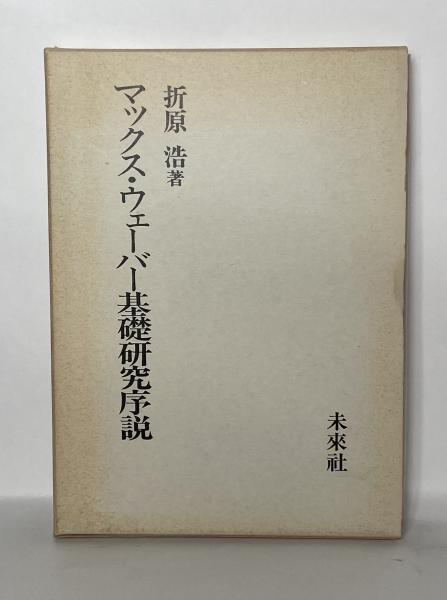 折原 浩著
マックス・ウェーバー基礎研究序説
未來社